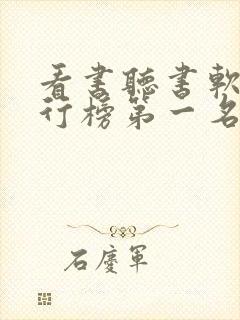 看書聽書軟
行榜第一名
石慶軍